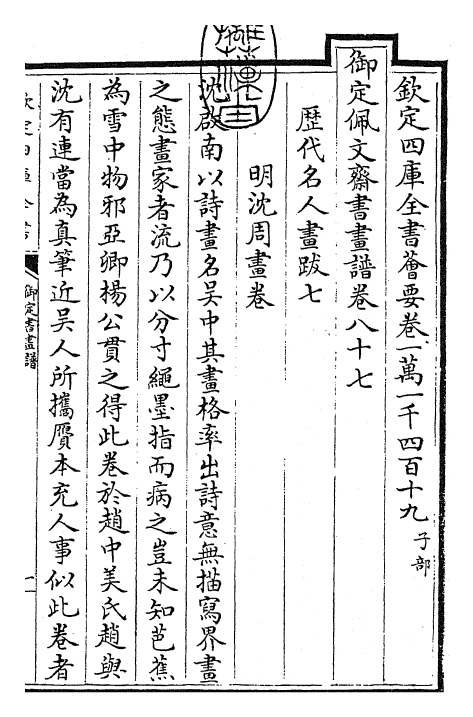 欽定四庫全書薈要卷一萬一千四百十九 子部
御定佩文齋書畫譜卷八十七
歷代名人畫跋七
明沈周畫卷
沈啟南以詩畫名吳中其畫格率出詩意無描寫界畫
之態畫家者流乃以分寸繩墨指而病之豈未知芭蕉
為雪中物邪亞卿楊公貫之得此卷於趙中美氏趙與
沈有連當為真筆近吳人所攜贋本充人事似此卷者
御定書畫譜
一